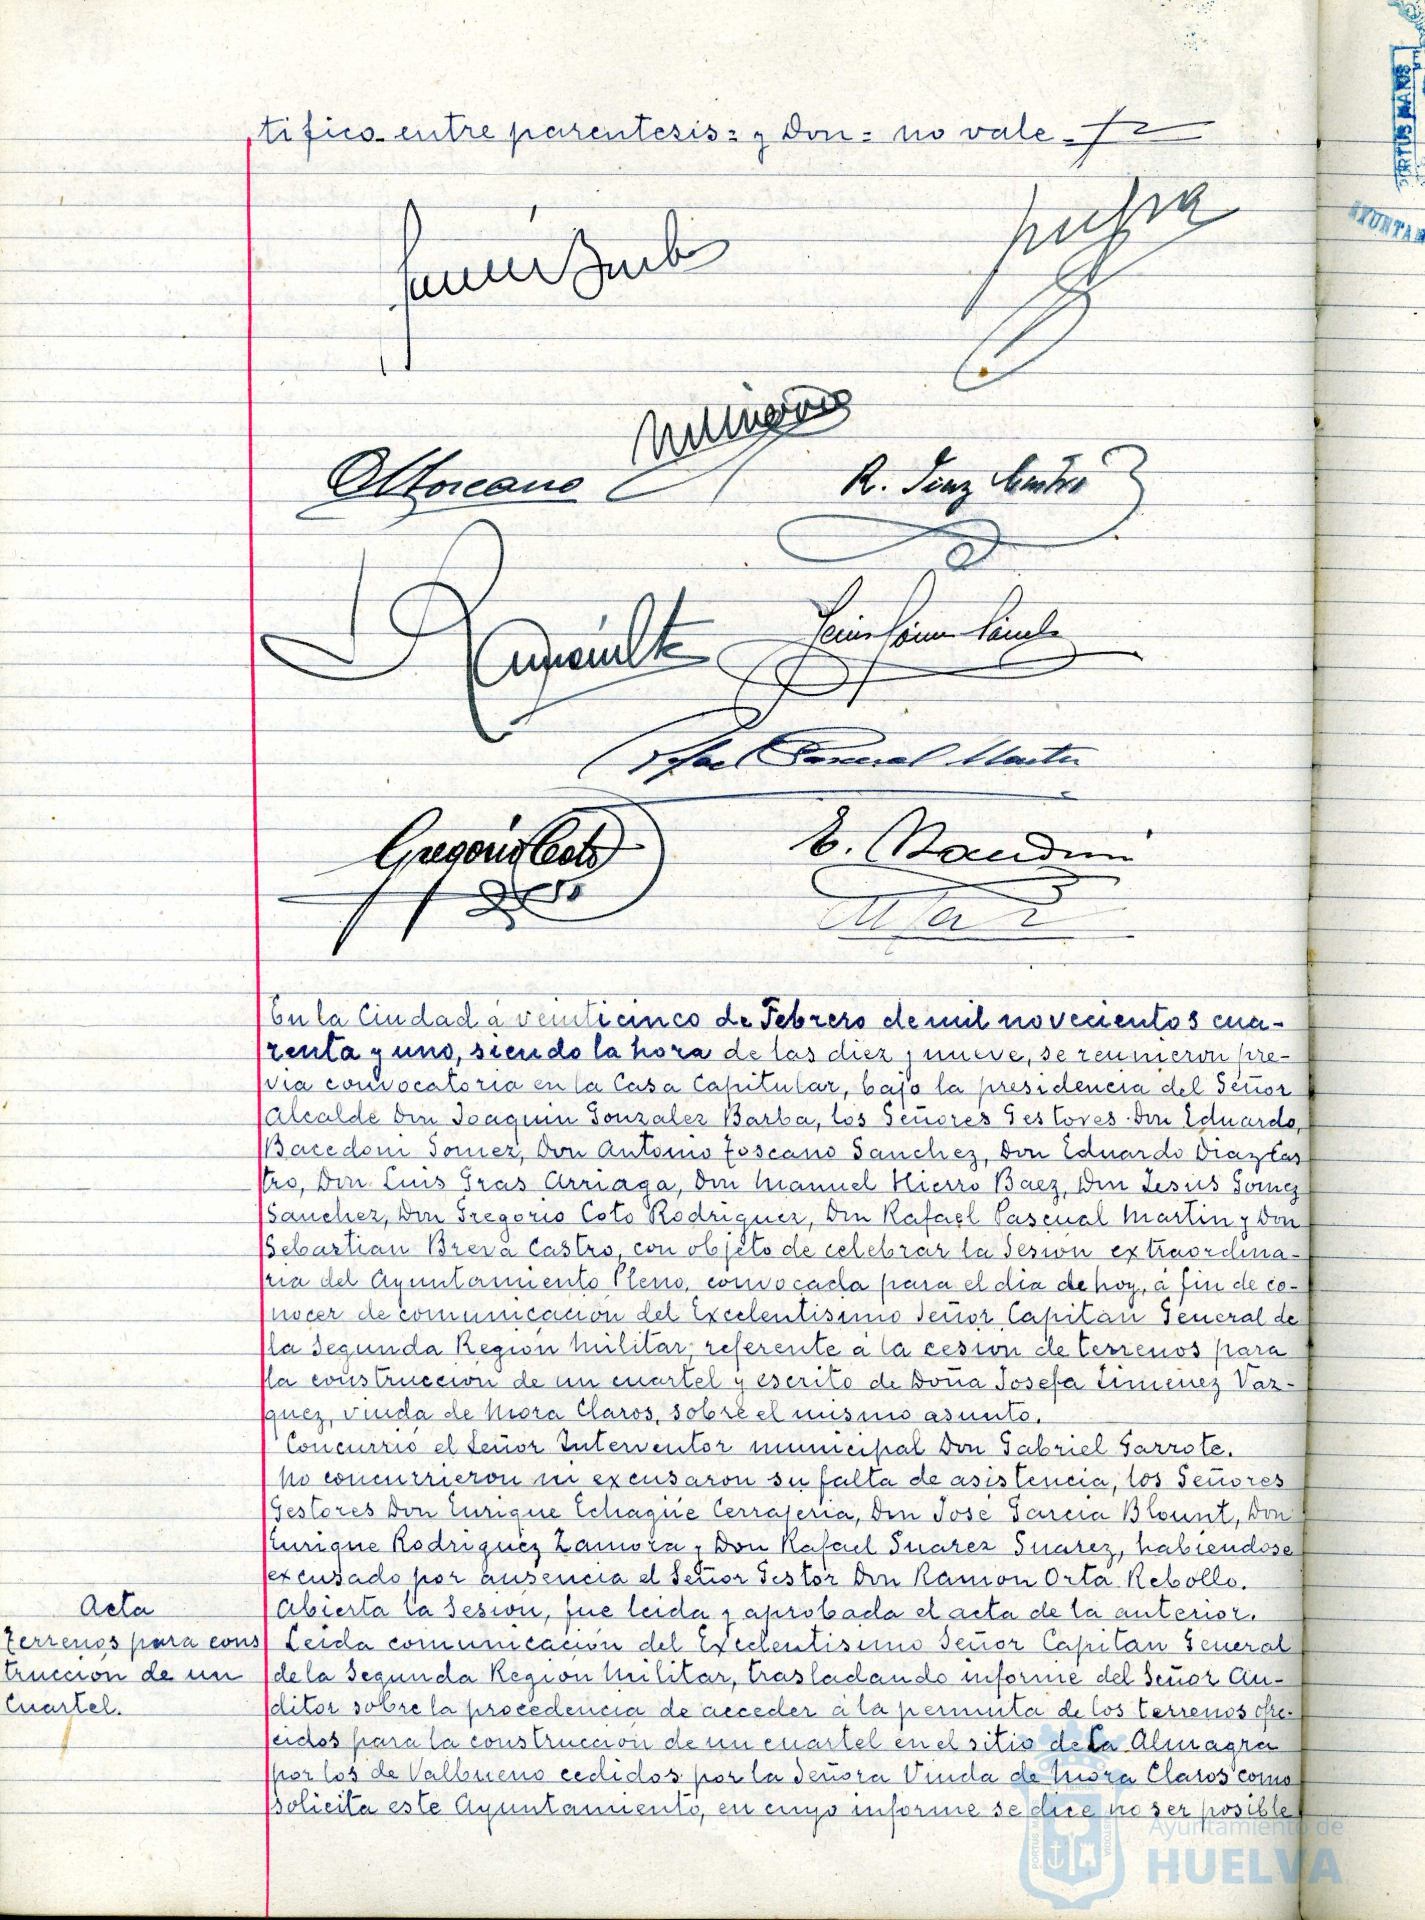 tifico_entre parentesis = y Don = no vale_
Gregorio Coto
En la Ciudad á veinticinco de Febrero de mil novecientos cua-
renta y uno, siendo la hora de las diez y nueve, se reunieron pre-
via convocatoria en la Casa Capitular, bajo la presidencia del Señor
Alcalde Don Joaquin Gonzalez Barba, los Señores Gestores Don Eduardo
Bacedoni Gomez, Don Antonio Toscano Sanchez, Don Eduardo Diaz Cas
tro, Don Luis Gras Arriaga, Don Manuel Hierro Baez, Don Jesus Gomez
Sanchez, Don Gregorio Coto Rodriguez, Don Rafael Pascual Martin y Don
Sebastian Breva Castro, con objeto de celebrar la Sesión extraordina-
ria del Ayuntamiento Pleno, convocada para el dia de hoy, á fin de co-
nocer de comunicación del Excelentisimo Señor Capitán General de
la Segunda Región Militar, referente á la cesión de terrenos para
la construccion de un cuartel y escrito de Doña Josefa Jimenez Vaz-
quez, viuda de Mora Claros, sobre el mismo asunto.
Concurrió el Señor Interventor municipal Don Gabriel Garrote.
No concurrieron ni excusaron su falta de asistencia, los Señores
Gestores Don Enrique Echagüe Cerrajeria, Don José Garcia Blount, Don
Enrique Rodriguez Zamora y Don Rafael Suarez Suarez, habiendose
excusado por ausencia el Señor Gestor Don Ramon Orta Rebollo.
Acta
Abierta la Sesion, fue leida y aprobada el acta de la anterior.
Terrenos para cons
trucción de un
Cuartel.
Leida comunicación del Excelentisimo Señor Capitan General
de la Segunda Región Militar, trasladando informe del Señor Au-
ditor sobre la procedencia de acceder á la permuta de los terrenos ofre-
cidos para la construccion de un cuartel en el sitio de La Almagra
por los de Valbueno cedidos por la Señora Viuda de Mora Claros como
solicita este Ayuntamiento, en cuyo informe se dice no ser posible
Ayuntamiento de
HUELVA